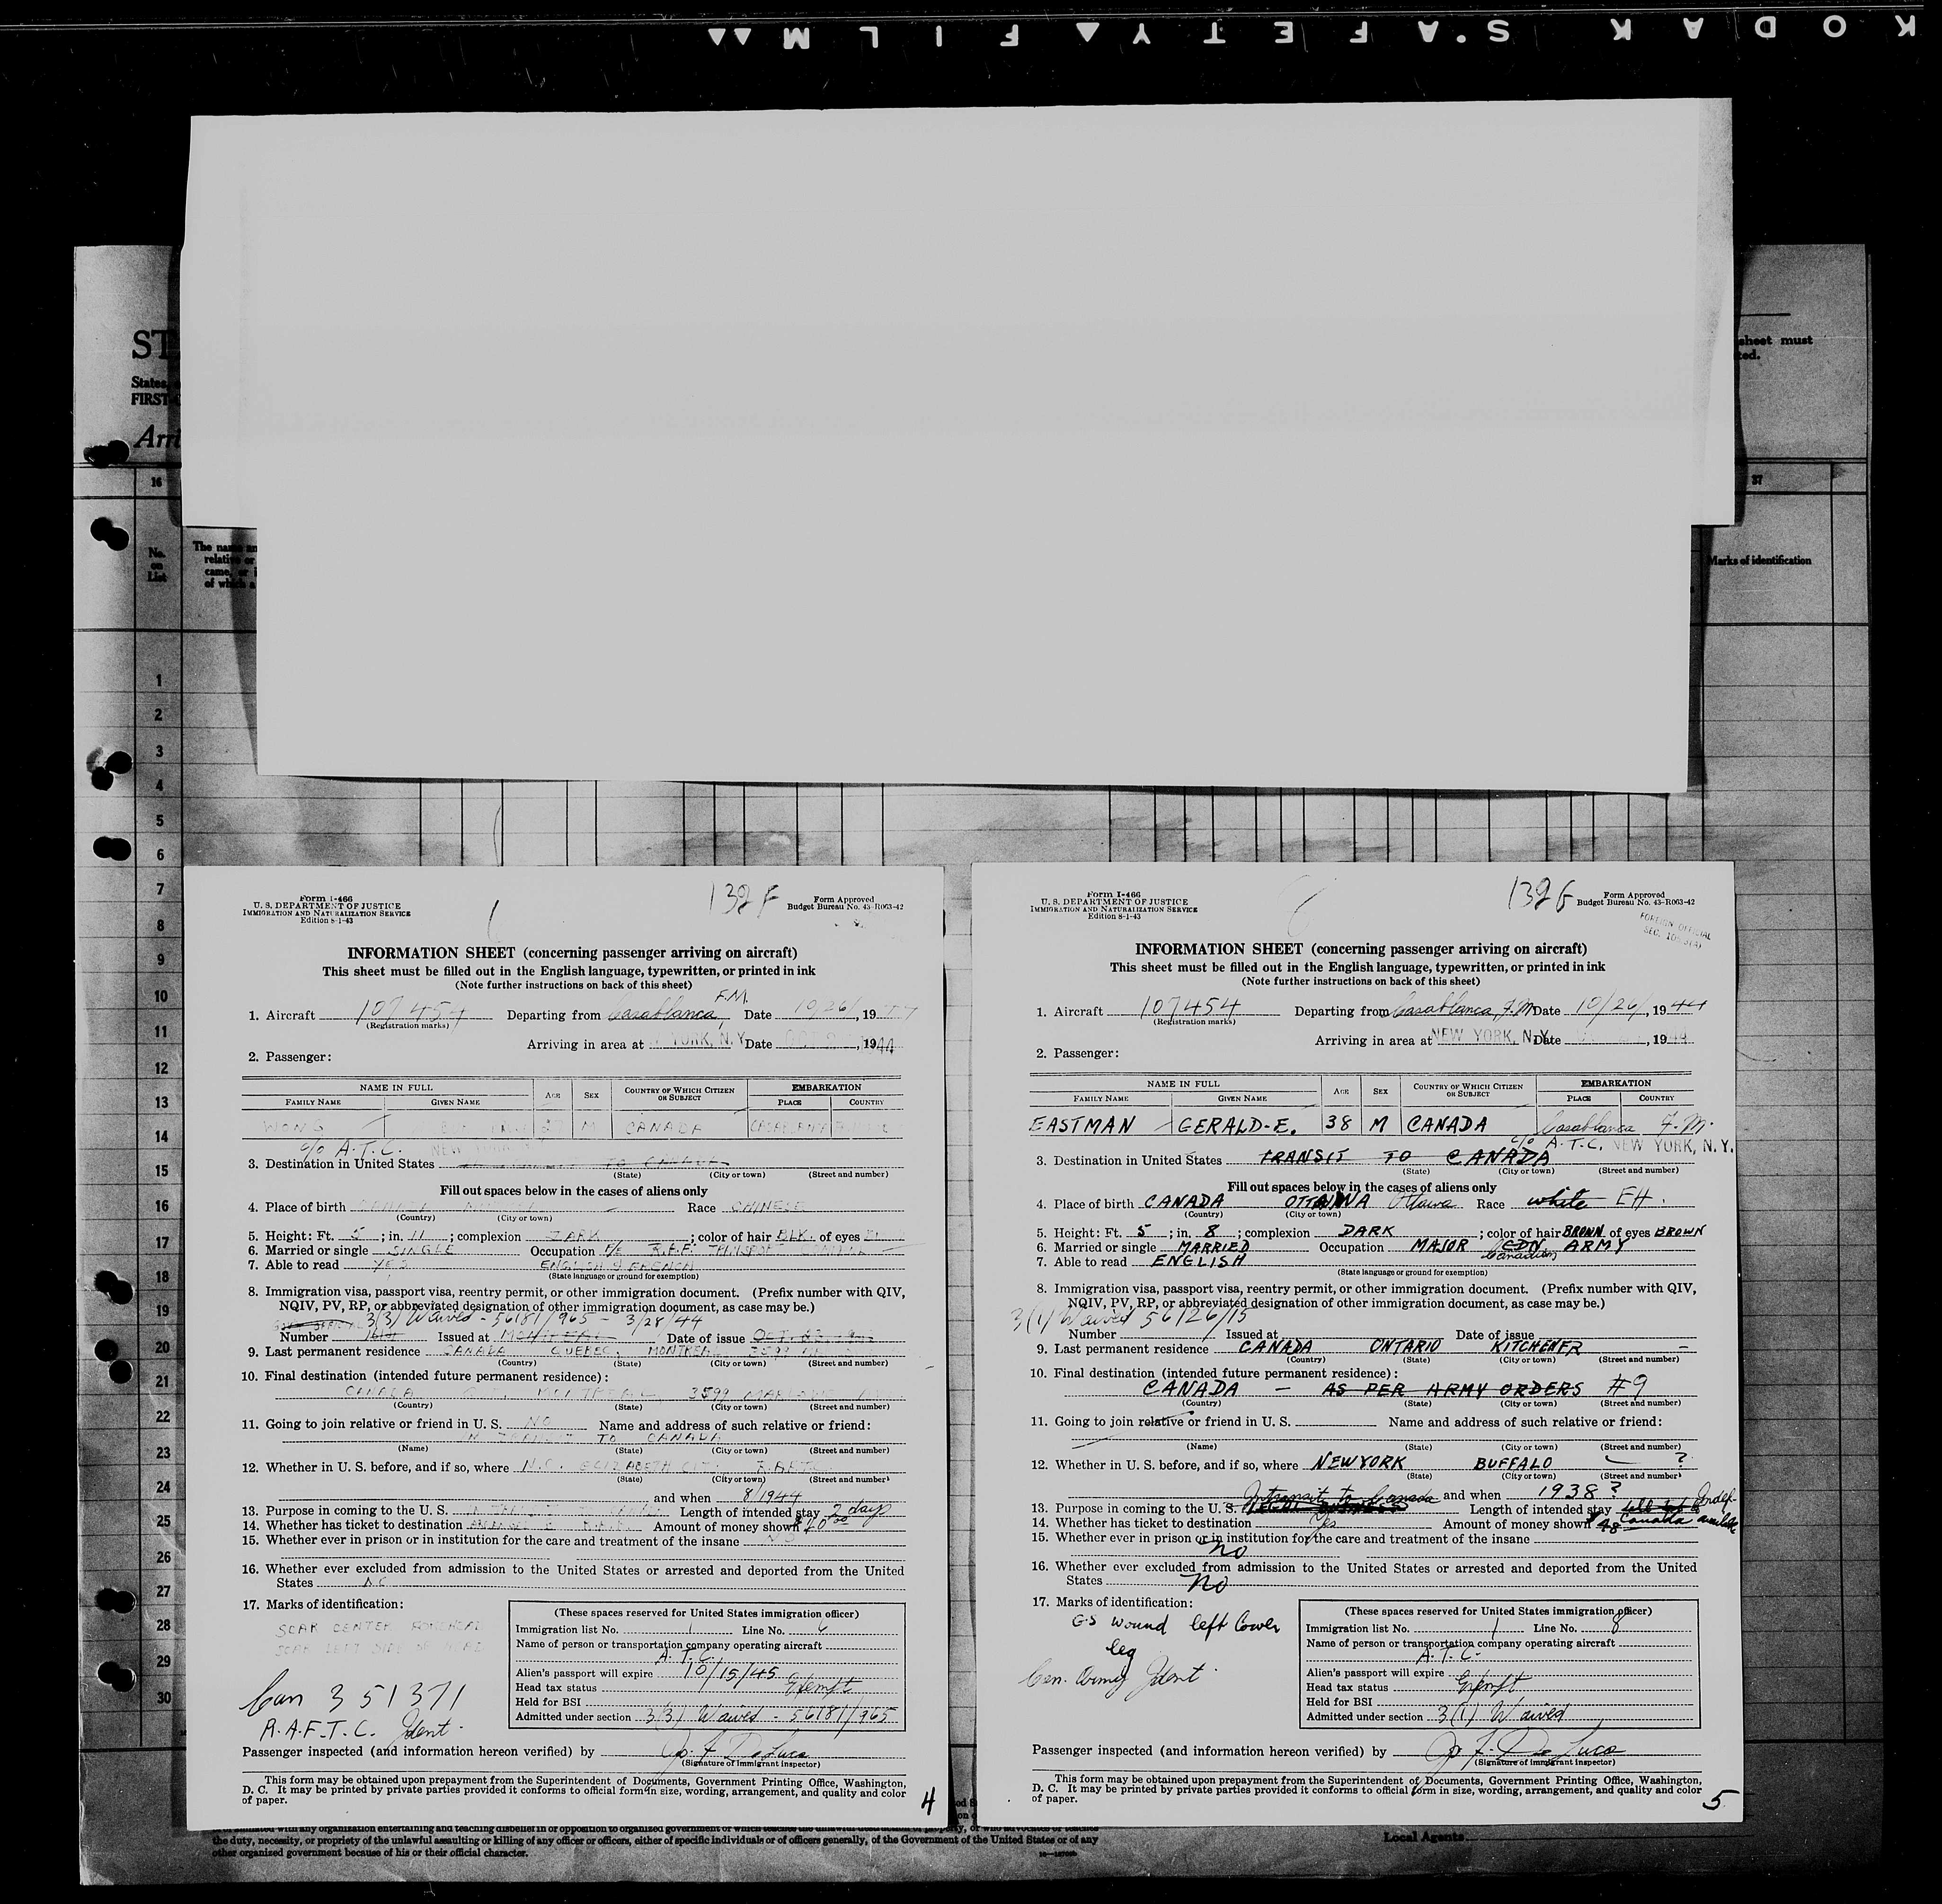 KODAK SAFETY FILM
ST
States,
FIRST-
Arri
sheet must
ted.
16
37
No.
on
List
The name an
relative or
came, or i
of which a
Marks of identification
1
2
3
4
5
6
7
8
9
10
11
12
13
14
15
16
17
18
19
20
21
22
23
24
25
26
27
28
29
30
Form I-466
U. S. DEPARTMENT OF JUSTICE
IMMIGRATION AND NATURALIZATION SERVICE
Edition 8-1-43
132 F
Form Approved
Budget Bureau No. 43-R063-42
INFORMATION SHEET (concerning passenger arriving on aircraft)
This sheet must be filled out in the English language, typewritten, or printed in ink
(Note further instructions on back of this sheet)
1. Aircraft 107454 Departing from Casablanca, F.M. Date 10/26/, 19
(Registration marks)
Arriving in area at YORK, N.Y. Date OCT , 1944
2. Passenger:
NAME IN FULL AGE SEX COUNTRY OF WHICH CITIZEN OR SUBJECT EMBARKATION
FAMILY NAME GIVEN NAME PLACE COUNTRY
WONG M CANADA
c/o A.T.C. NEW YORK
3. Destination in United States TO CANADA
(State) (City or town) (Street and number)
Fill out spaces below in the cases of aliens only
4. Place of birth Race CHINESE
(Country) (City or town)
5. Height: Ft. 5; in. 11; complexion DARK; color of hair BLK. of eyes
6. Married or single SINGLE Occupation R.A.F. TRANSPORT
7. Able to read YES ENGLISH & FRENCH
(State language or ground for exemption)
8. Immigration visa, passport visa, reentry permit, or other immigration document. (Prefix number with QIV,
NQIV, PV, RP, or abbreviated designation of other immigration document, as case may be.)
3(3) Waived - 56181/965 - 3/28/44
Number Issued at MONTREAL Date of issue OCT.
9. Last permanent residence CANADA QUEBEC, MONTREAL 3599
(Country) (State) (City or town) (Street and number)
10. Final destination (intended future permanent residence):
CANADA MONTREAL 3599 MARLOWE
(Country) (State) (City or town) (Street and number)
11. Going to join relative or friend in U. S. NO Name and address of such relative or friend:
IN TRANSIT TO CANADA
(Name) (State) (City or town) (Street and number)
12. Whether in U. S. before, and if so, where N.C. ELIZABETH CITY R.A.F.T.C.
(State) (City or town) (Street and number)
and when 8/1944
13. Purpose in coming to the U. S. Length of intended stay 2 days
14. Whether has ticket to destination Amount of money shown
15. Whether ever in prison or in institution for the care and treatment of the insane
16. Whether ever excluded from admission to the United States or arrested and deported from the United
States NO
17. Marks of identification:
SCAR CENTER FOREHEAD
SCAR LEFT SIDE OF HEAD
Can 351371
R.A.F.T.C. Ident.
(These spaces reserved for United States immigration officer)
Immigration list No. 1 Line No. 6
Name of person or transportation company operating aircraft
A.T.C.
Alien's passport will expire 10/15/45
Head tax status Exempt
Held for BSI
Admitted under section 3(3) Waived - 56181/965
Passenger inspected (and information hereon verified) by Jo. F. DeLuca
(Signature of immigrant inspector)
This form may be obtained upon prepayment from the Superintendent of Documents, Government Printing Office, Washington,
D. C. It may be printed by private parties provided it conforms to official form in size, wording, arrangement, and quality and color
of paper.
4
Form I-466
U. S. DEPARTMENT OF JUSTICE
IMMIGRATION AND NATURALIZATION SERVICE
Edition 8-1-43
132 G
Form Approved
Budget Bureau No. 43-R063-42
FOREIGN OFFICIAL
INFORMATION SHEET (concerning passenger arriving on aircraft)
This sheet must be filled out in the English language, typewritten, or printed in ink
(Note further instructions on back of this sheet)
1. Aircraft 107454 Departing from Casablanca, F.M. Date 10/26/, 1944
(Registration marks)
Arriving in area at NEW YORK, N.Y. Date , 1944
2. Passenger:
NAME IN FULL AGE SEX COUNTRY OF WHICH CITIZEN OR SUBJECT EMBARKATION
FAMILY NAME GIVEN NAME PLACE COUNTRY
EASTMAN GERALD-E. 38 M CANADA Casablanca F.M.
c/o A.T.C. NEW YORK, N.Y.
3. Destination in United States TRANSIT TO CANADA
(State) (City or town) (Street and number)
Fill out spaces below in the cases of aliens only
4. Place of birth CANADA OTTAWA Ottawa Race white EH.
(Country) (City or town)
5. Height: Ft. 5; in. 8; complexion DARK; color of hair BROWN of eyes BROWN
6. Married or single MARRIED Occupation MAJOR CDN ARMY
Canadian
7. Able to read ENGLISH
(State language or ground for exemption)
8. Immigration visa, passport visa, reentry permit, or other immigration document. (Prefix number with QIV,
NQIV, PV, RP, or abbreviated designation of other immigration document, as case may be.)
3(1) Waived 56126/15
Number Issued at Date of issue
9. Last permanent residence CANADA ONTARIO KITCHENER -
(Country) (State) (City or town) (Street and number)
10. Final destination (intended future permanent residence):
CANADA - AS PER ARMY ORDERS #9
(Country) (State) (City or town) (Street and number)
11. Going to join relative or friend in U. S. Name and address of such relative or friend:
(Name) (State) (City or town) (Street and number)
12. Whether in U. S. before, and if so, where NEWYORK BUFFALO ?
(State) (City or town) (Street and number)
and when 1938?
Intransit to Canada
13. Purpose in coming to the U. S. Length of intended stay
14. Whether has ticket to destination Yes Amount of money shown $48 Canada
15. Whether ever in prison or in institution for the care and treatment of the insane
no
16. Whether ever excluded from admission to the United States or arrested and deported from the United
States no
17. Marks of identification:
GS wound left lower
leg
Can. Army Ident.
(These spaces reserved for United States immigration officer)
Immigration list No. 1 Line No. 8
Name of person or transportation company operating aircraft
A.T.C.
Alien's passport will expire
Head tax status Exempt
Held for BSI
Admitted under section 3(1) Waived
Passenger inspected (and information hereon verified) by Jo. F. DeLuca
(Signature of immigrant inspector)
This form may be obtained upon prepayment from the Superintendent of Documents, Government Printing Office, Washington,
D. C. It may be printed by private parties provided it conforms to official form in size, wording, arrangement, and quality and color
of paper.
5
the duty, necessity, or propriety of the unlawful assaulting or killing of any officer or officers, either of specific individuals or of officers generally, of the Government of the United States or of any
other organized government because of his or their official character.
Local Agents